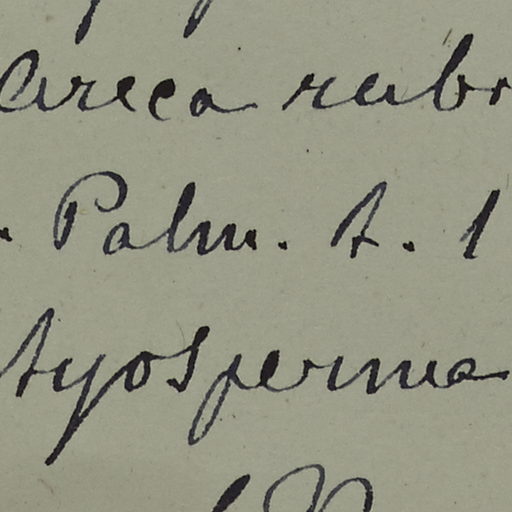 Areca rubr
. Palm. t. 1
tyosperma